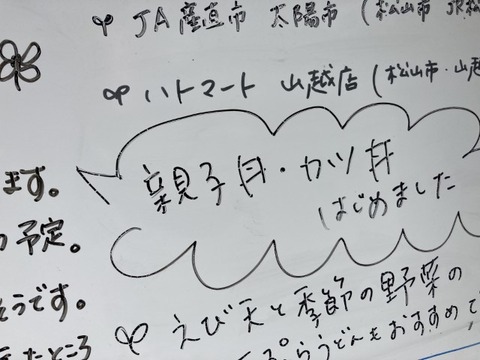 JA産直市 太陽市 (松山市 JR松
ハトマート 山越店 (松山市・山越
親子丼・カツ丼
はじめました
きます。
の予定。
そうです。
えび天と季節の野菜の
天ぷらうどんもおすすめで
たところ